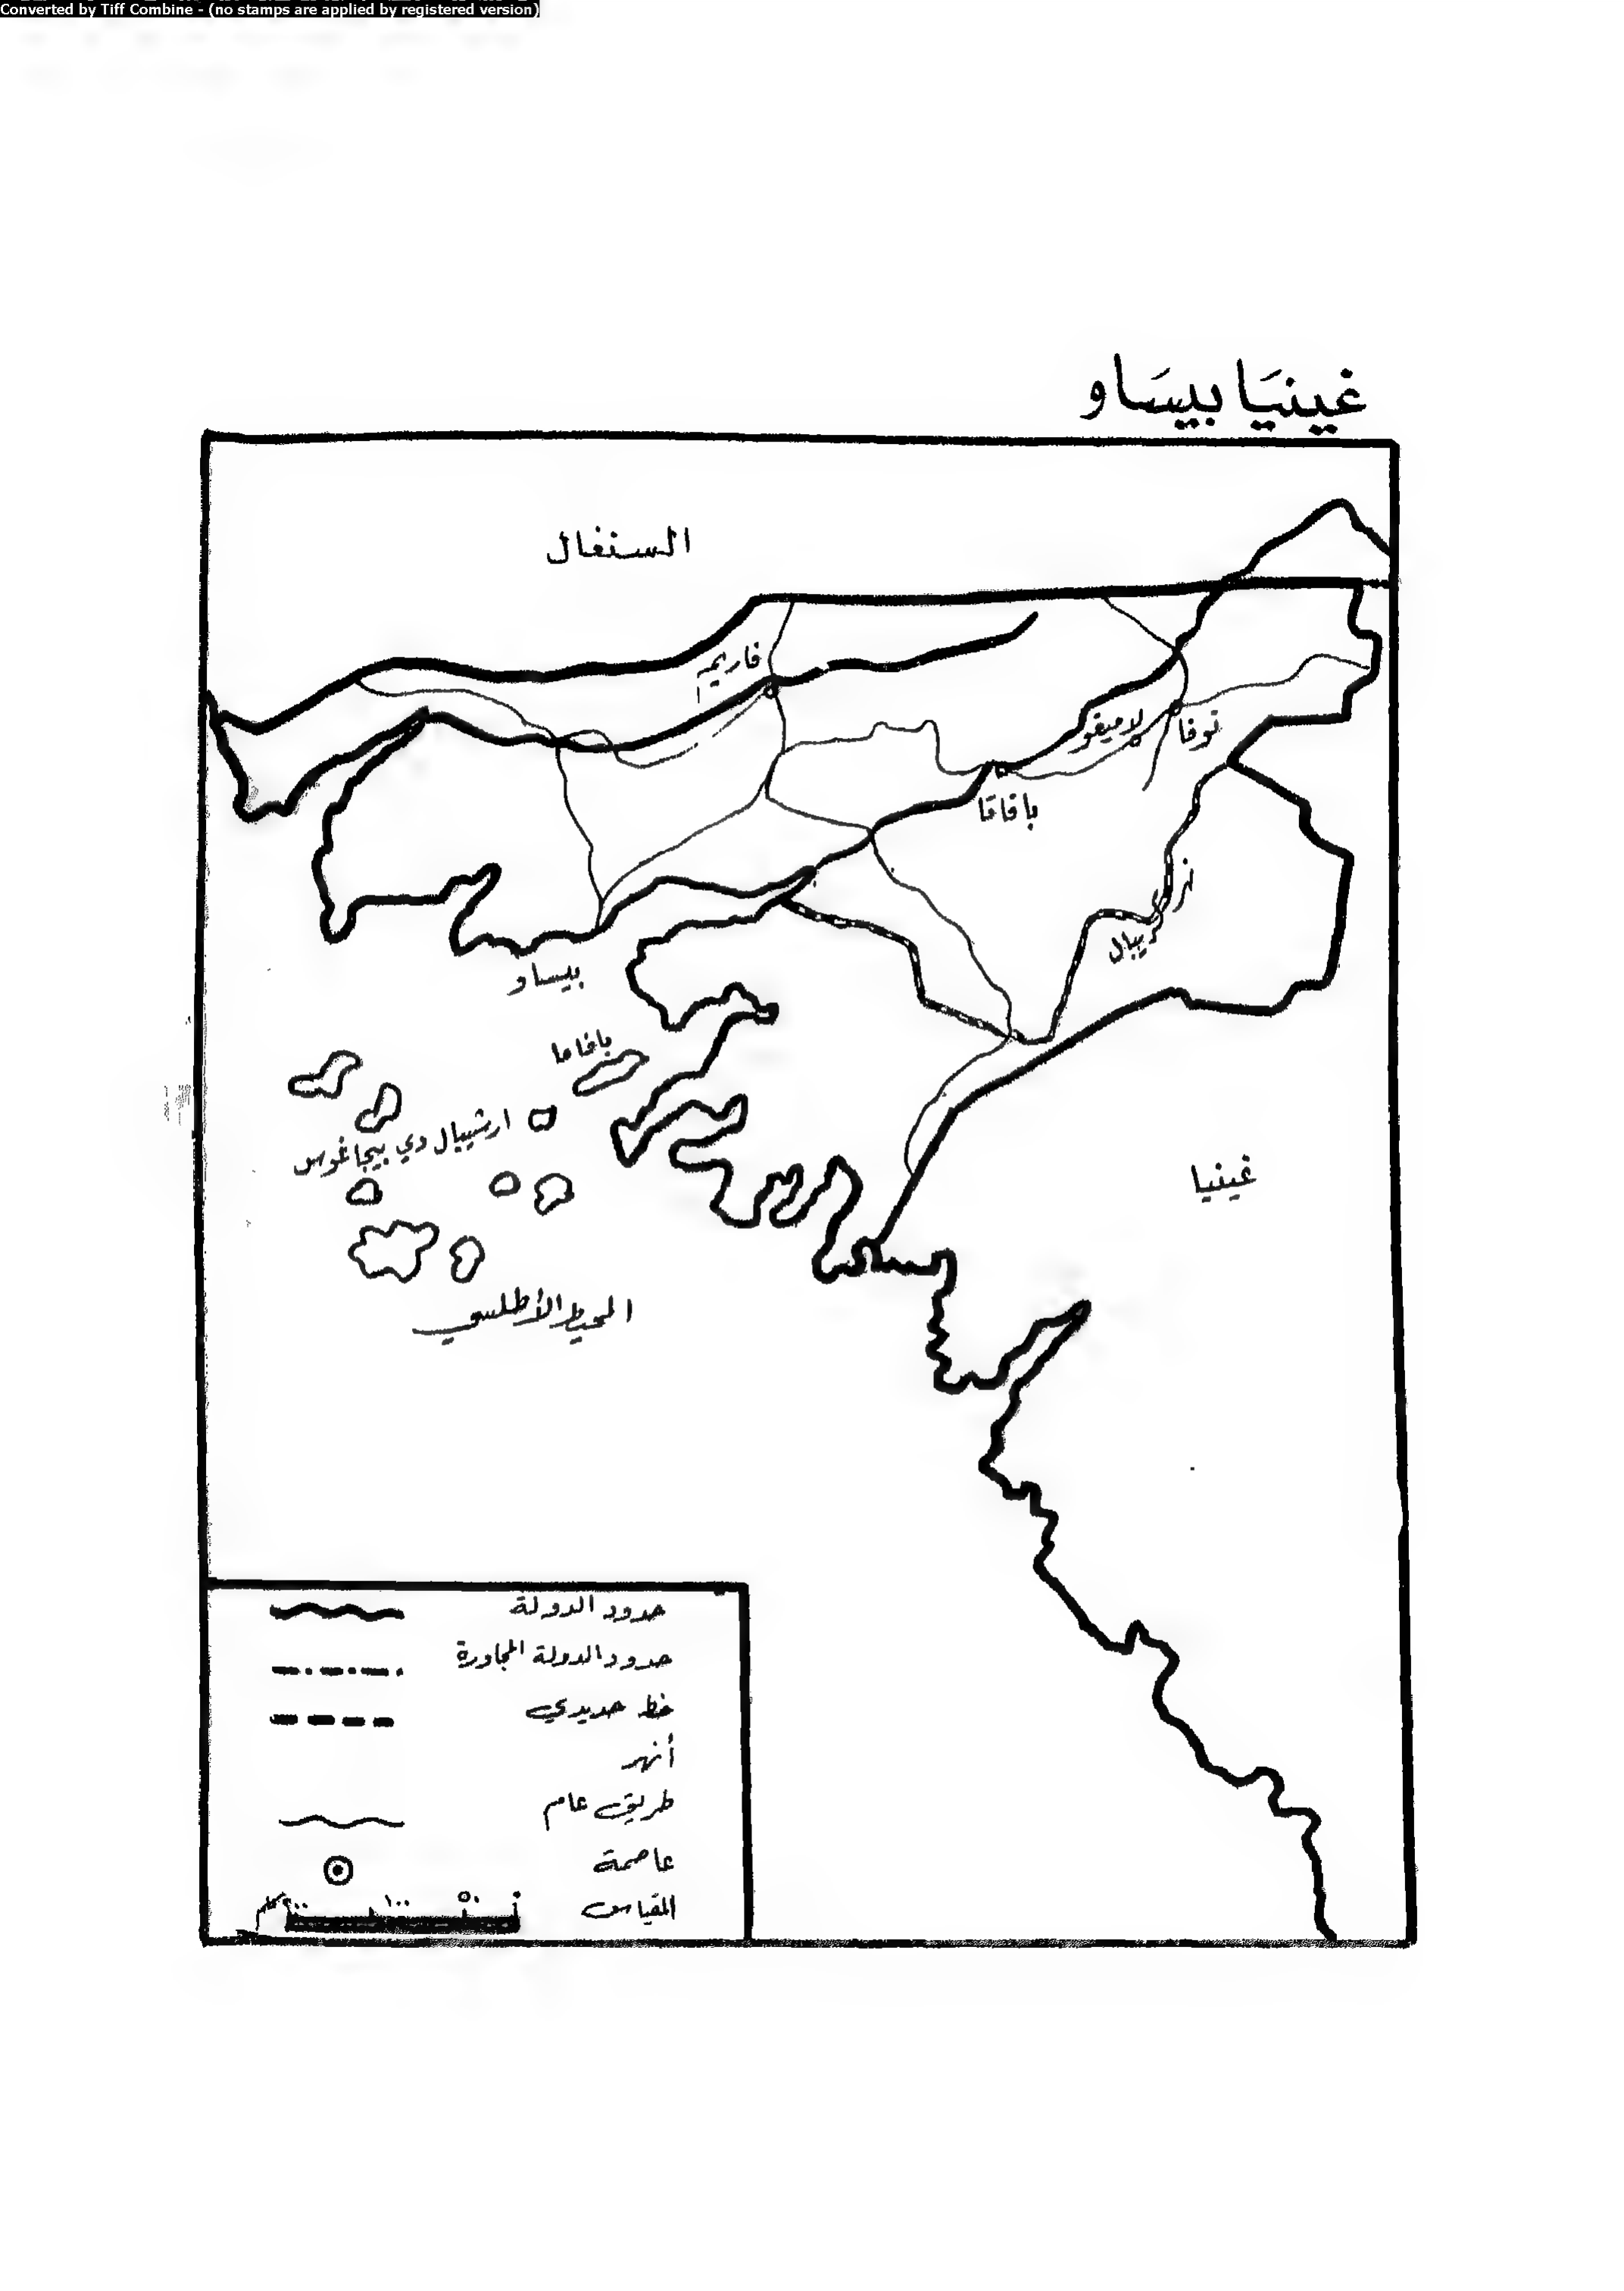 Converted by Tiff Combine - (no stamps are applied by registered version)
غينيا بيساو
السنغال
فاريم
لاميقو
نوفا
بافاقا
نهر
بيساو
بافاما
ارشيبال دي بيجاغوس
غينيا
المحيط الأطلسي
حدود الدولة
حدود الدولة المجاورة
خط حديدي
أنهر
طريق عام
عاصمة
المقياس
٠ ٥٠ ١٠٠ ٢٠٠ كلم